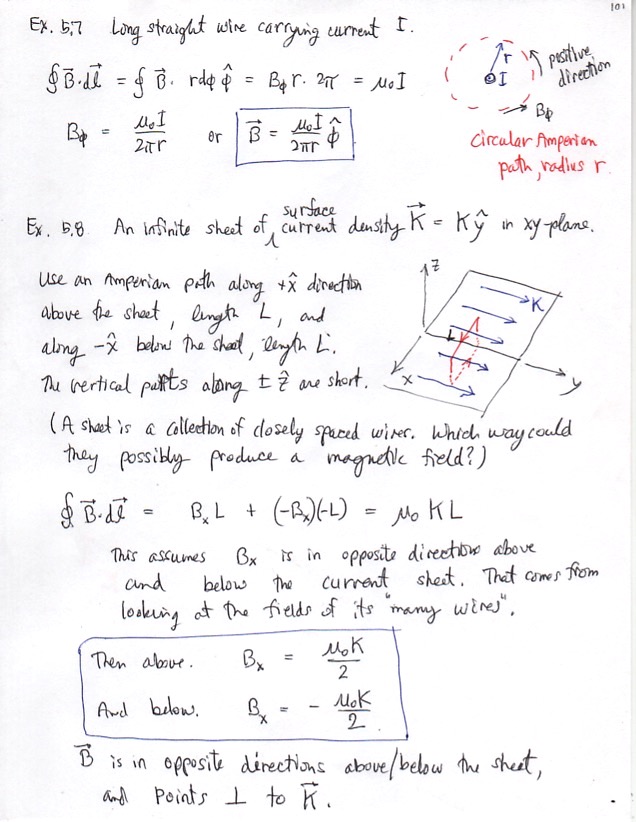 101
Ex. 5.7 Long straight wire carrying current I.
∮ B⃗·dl⃗ = ∮ B⃗· rdϕ ϕ̂ = Bϕ r · 2π = μ₀I
Bϕ = μ₀I / 2πr or B⃗ = μ₀I / 2πr ϕ̂
r
I
positive
direction
Bϕ
Circular Amperian
path, radius r
Ex. 5.8 An infinite sheet of surface current density K⃗ = K ŷ in xy-plane.
Use an Amperian path along +x̂ direction
above the sheet, length L, and
along -x̂ below the sheet, length L.
The vertical parts along ± ẑ are short.
Z
K
L
x
y
(A sheet is a collection of closely spaced wires. Which way could
they possibly produce a magnetic field?)
∮ B⃗·dl⃗ = Bₓ L + (-Bₓ)(-L) = μ₀ KL
This assumes Bₓ is in opposite direction above
and below the current sheet. That comes from
looking at the fields of its "many wires".
Then above. Bₓ = μ₀K / 2
And below. Bₓ = - μ₀K / 2
B⃗ is in opposite directions above/below the sheet,
and points ⊥ to K⃗.